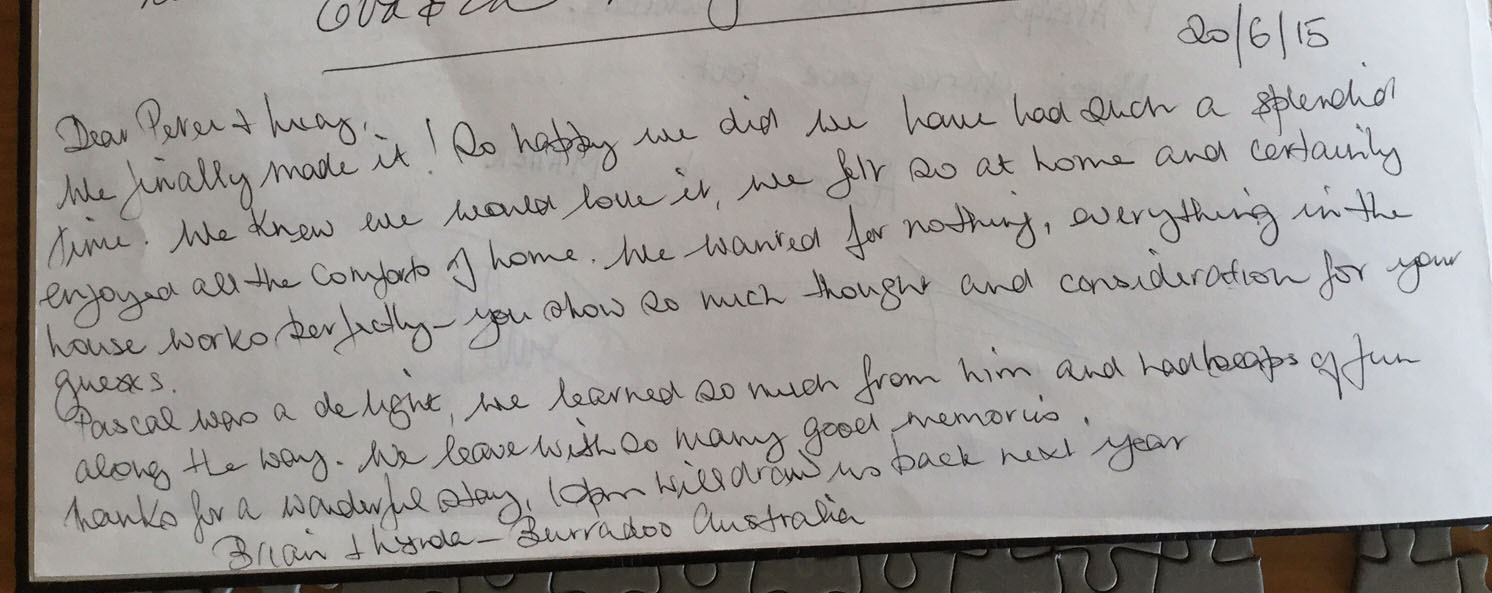 20/6/15
Dear Peter & Lucy,
We finally made it! So happy we did we have had such a splendid
time. We knew we would love it, we felt so at home and certainly
enjoyed all the comforts of home. We wanted for nothing, everything in the
house works perfectly - you show so much thought and consideration for your
guests.
Pascal was a delight, we learned so much from him and had heaps of fun
along the way. We leave with so many good memories.
hanks for a wonderful stay, will draw us back next year
Brian & Lynda - Burradoo Australia